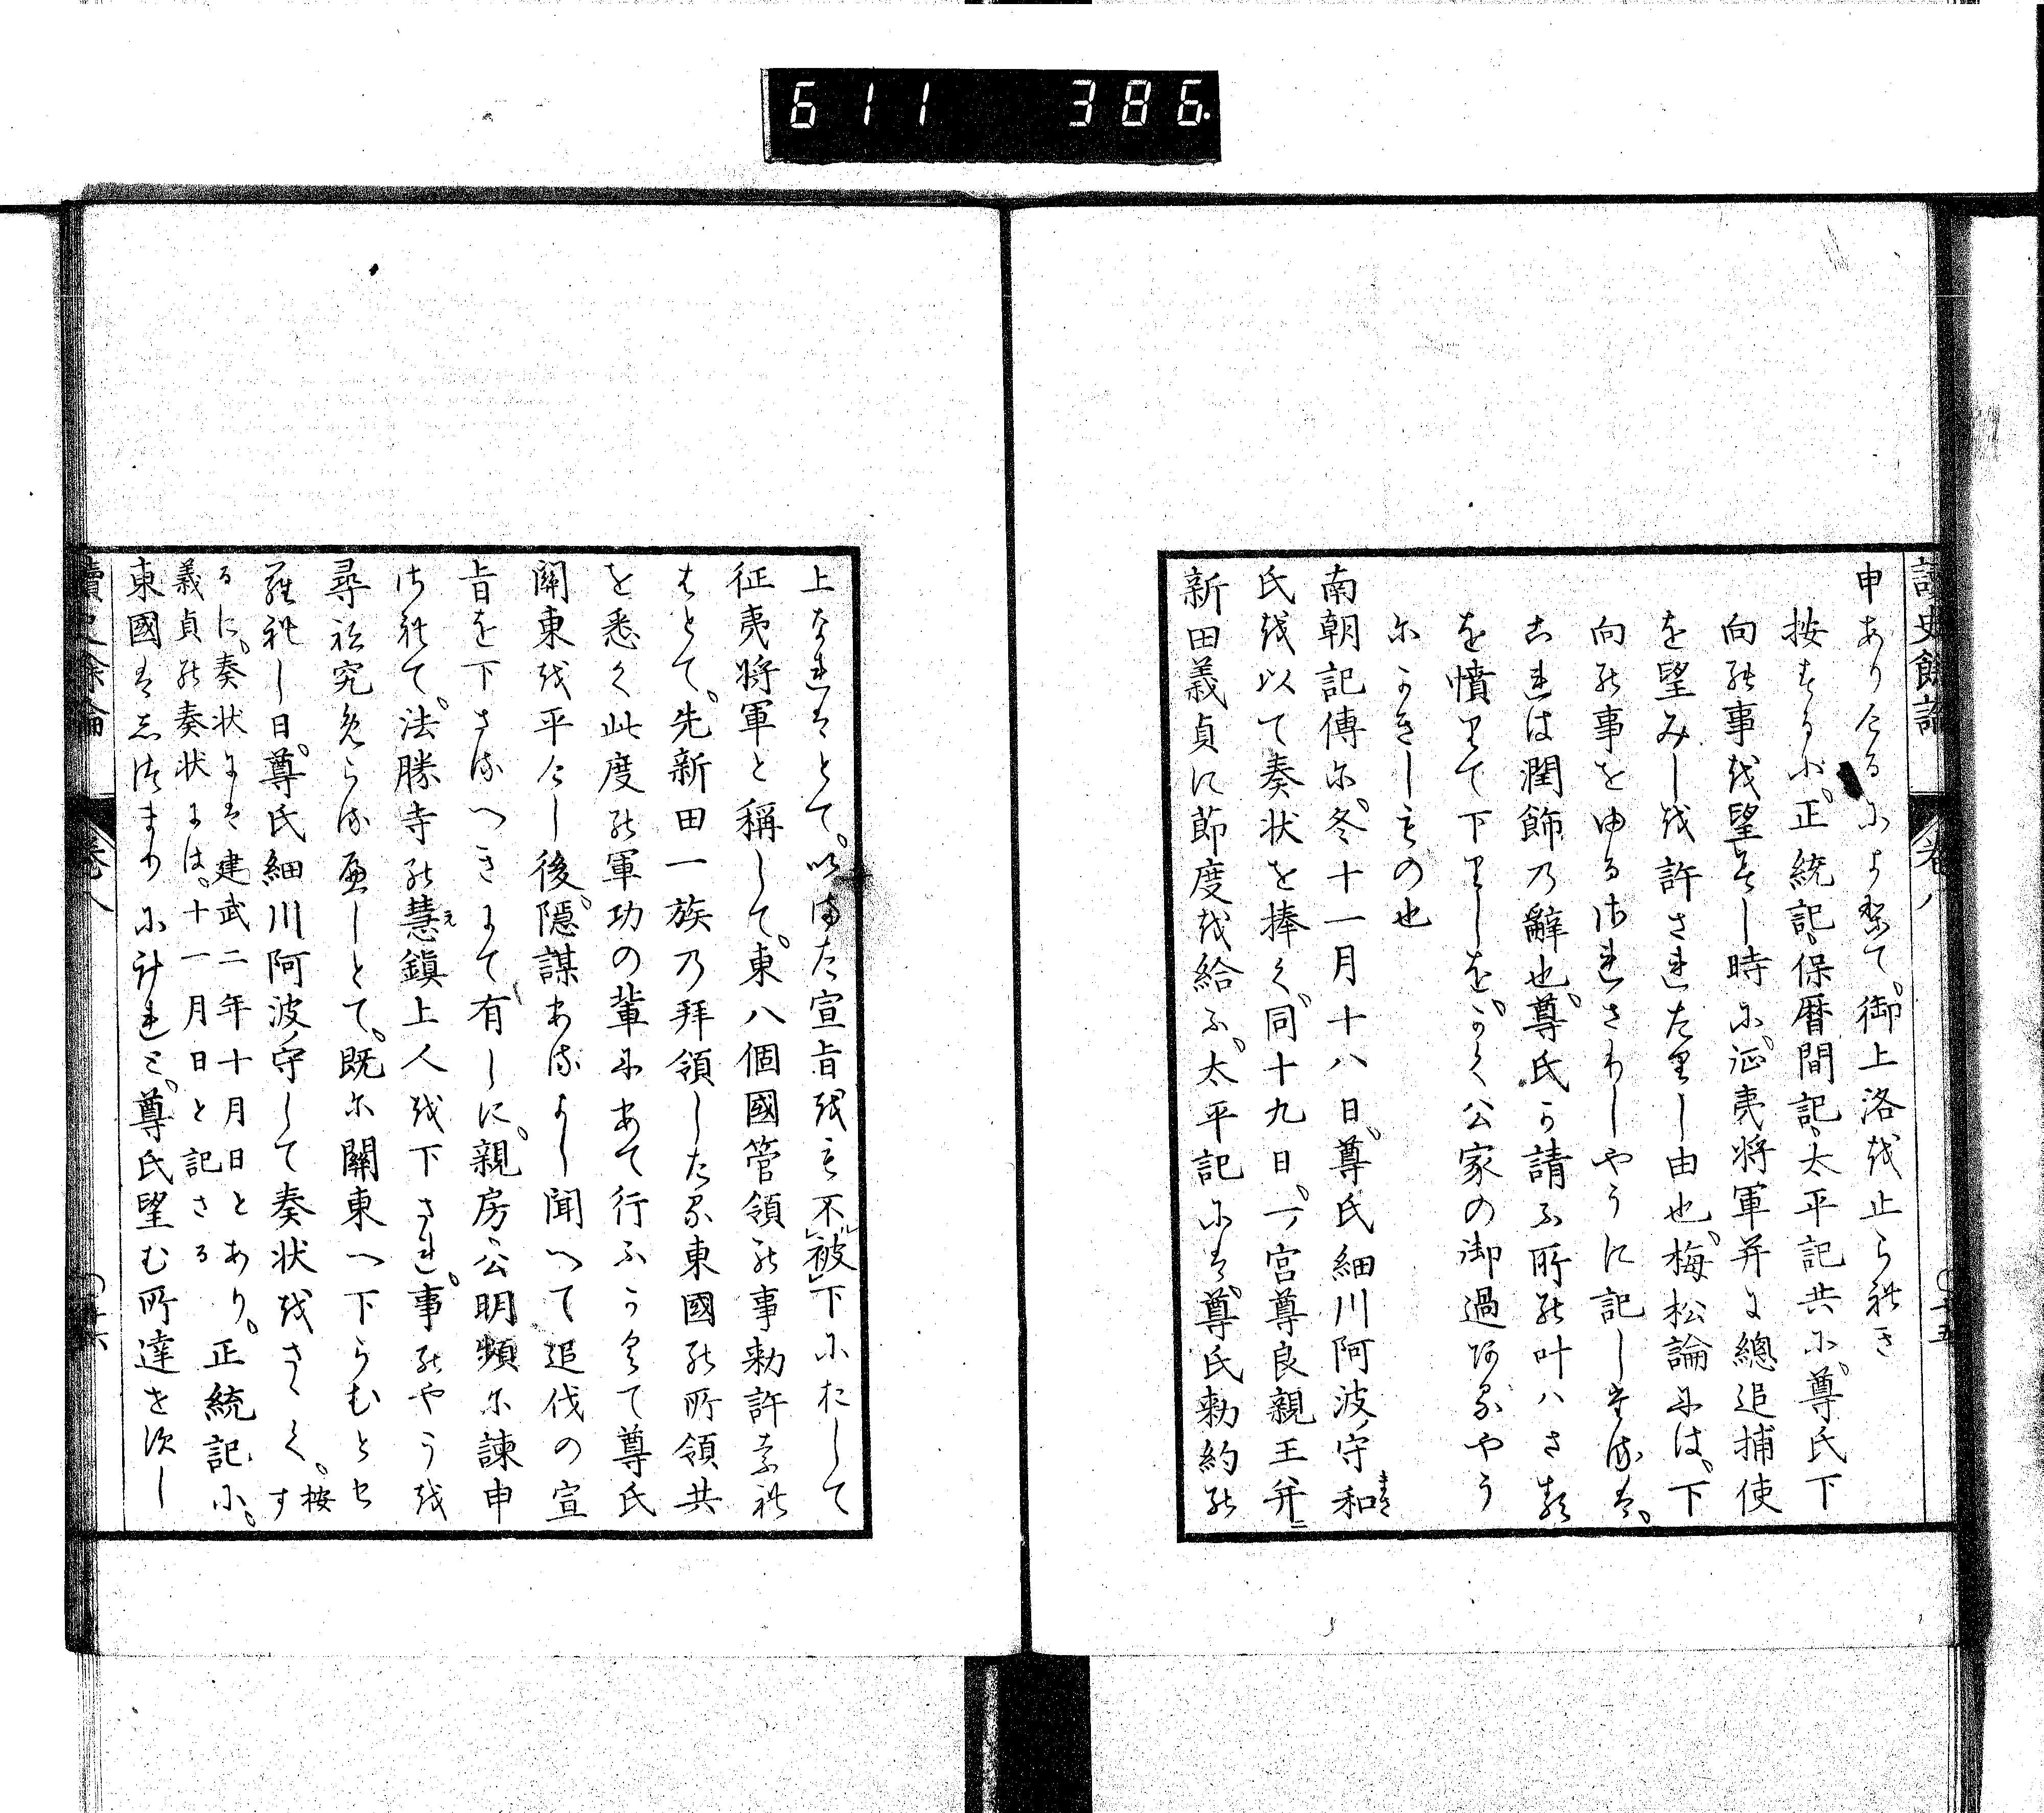 611 386.
讀史餘論 卷八
申ありけるによりて。御上洛を止られき
按するに。正統記。保暦間記。太平記共に。尊氏下
向の事を望そし時に。征夷将軍并に總追捕使
を望みしを許されたりし由也。梅松論には。下
向の事をゆるされさりしやうに記しぬるは。
これは潤飾の辭也。尊氏か請ふ所の叶ハさる
を憤りて下りしを。かく公家の御過あるやう
にかきしもの也
南朝記傳に。冬十一月十八日。尊氏細川阿波ノ守和
氏を以て奏状を捧く。同十九日。一ノ宮尊良親王并ニ
新田義貞に節度を給ふ。太平記には。尊氏勅約の
上なれはとて。いまた宣旨をも不被下におして
征夷将軍と稱して。東八個國管領の事勅許なれ
はとて。先新田一族の拜領したる東國の所領共
を悉く此度の軍功の輩にあて行ふかくて尊氏
關東を平けし後。隠謀あるよし聞へて追伐の宣
旨を下さるへきにて有しに。親房公明頻に諫申
されて。法勝寺の慧鎭上人を下され。事のやうを
尋ね究めらるへしとて。既に關東へ下らむとせ
られし日。尊氏細川阿波ノ守して奏状をさゝく。按す
るに。奏状には建武二年十月日とあり。正統記に。
義貞の奏状には。十一月日と記さる
東國はしつまりに計れと。尊氏望む所達せすし
讀史餘論 卷八